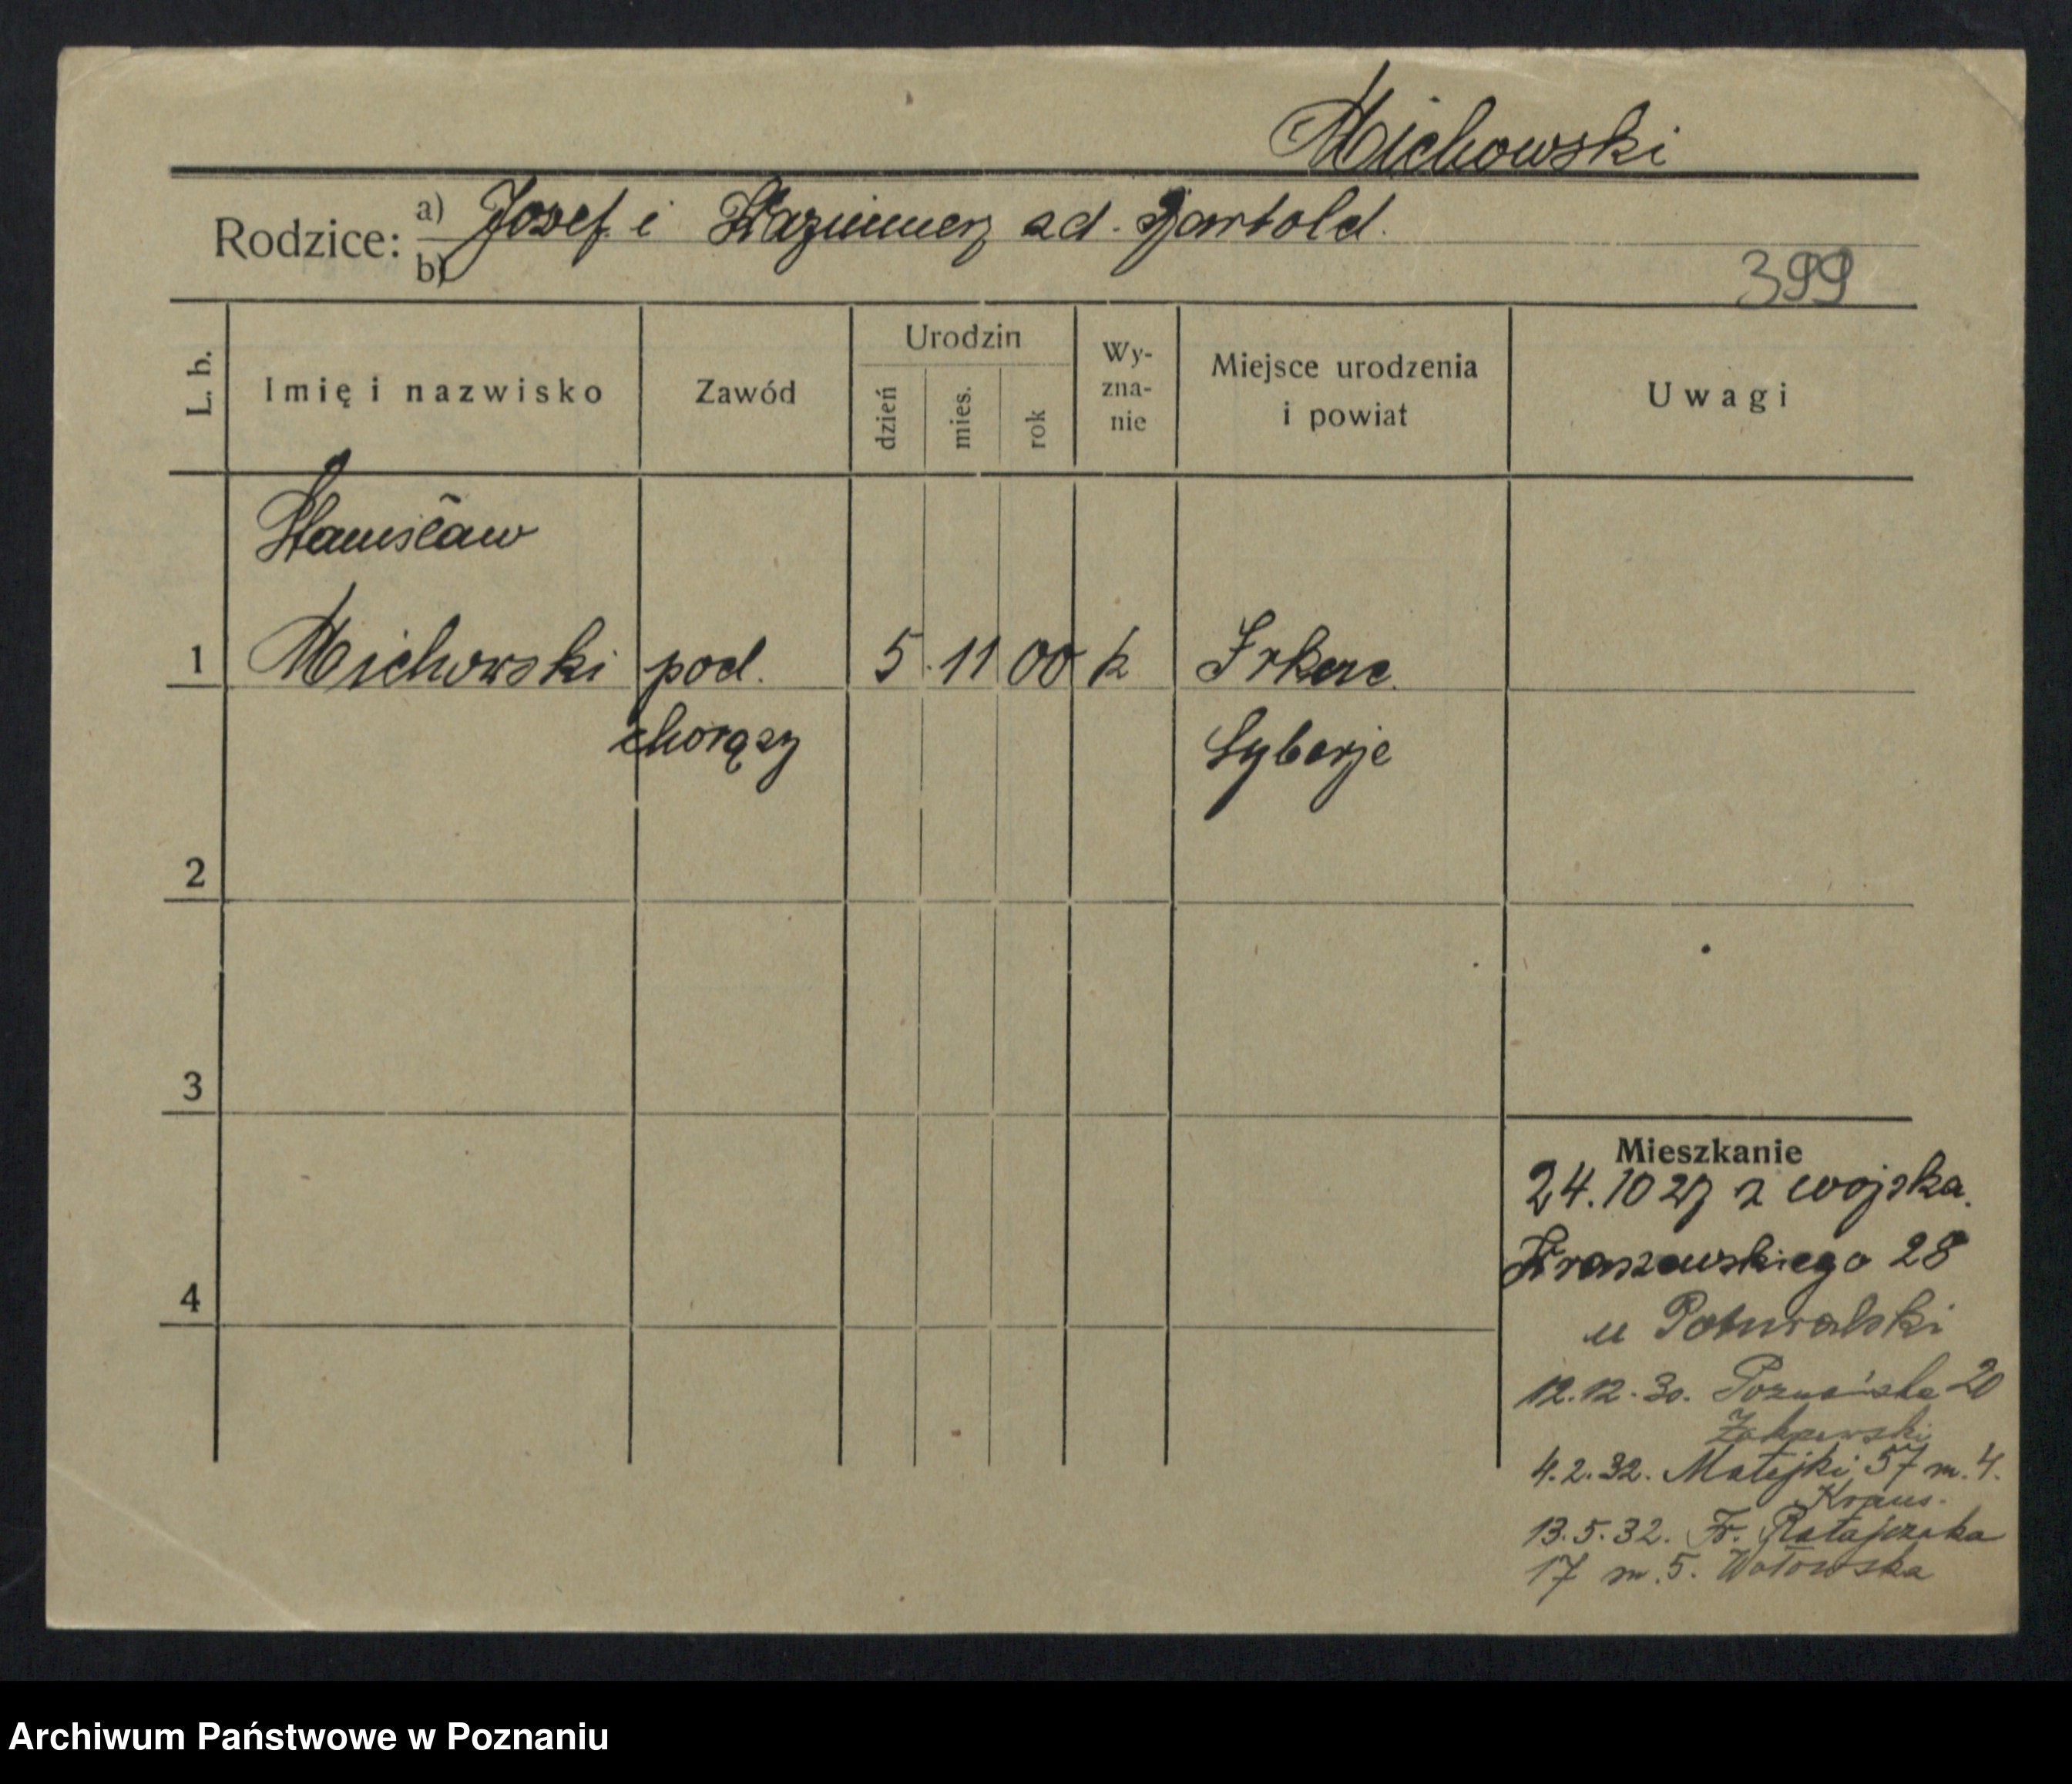 Michowski
Rodzice: a) Josef i Kazimierz zd. Bartold.
b)
399
L. b.
Imię i nazwisko
Zawód
Urodzin
dzień
mies.
rok
Wy-
zna-
nie
Miejsce urodzenia
i powiat
Uwagi
Stanisław
1 Michowski pod. 5. 11 00 k
chorąży
Syberje
2
3
4
Mieszkanie
24.10 27 z wojska.
Kraszewskiego 28
u
12.12.30. Poznańska 20
4.2.32. Matejki 57 m. 4.
Kraus.
13.5.32. Fr. Ratajczaka
17 m. 5. Wołowska
Archiwum Państwowe w Poznaniu